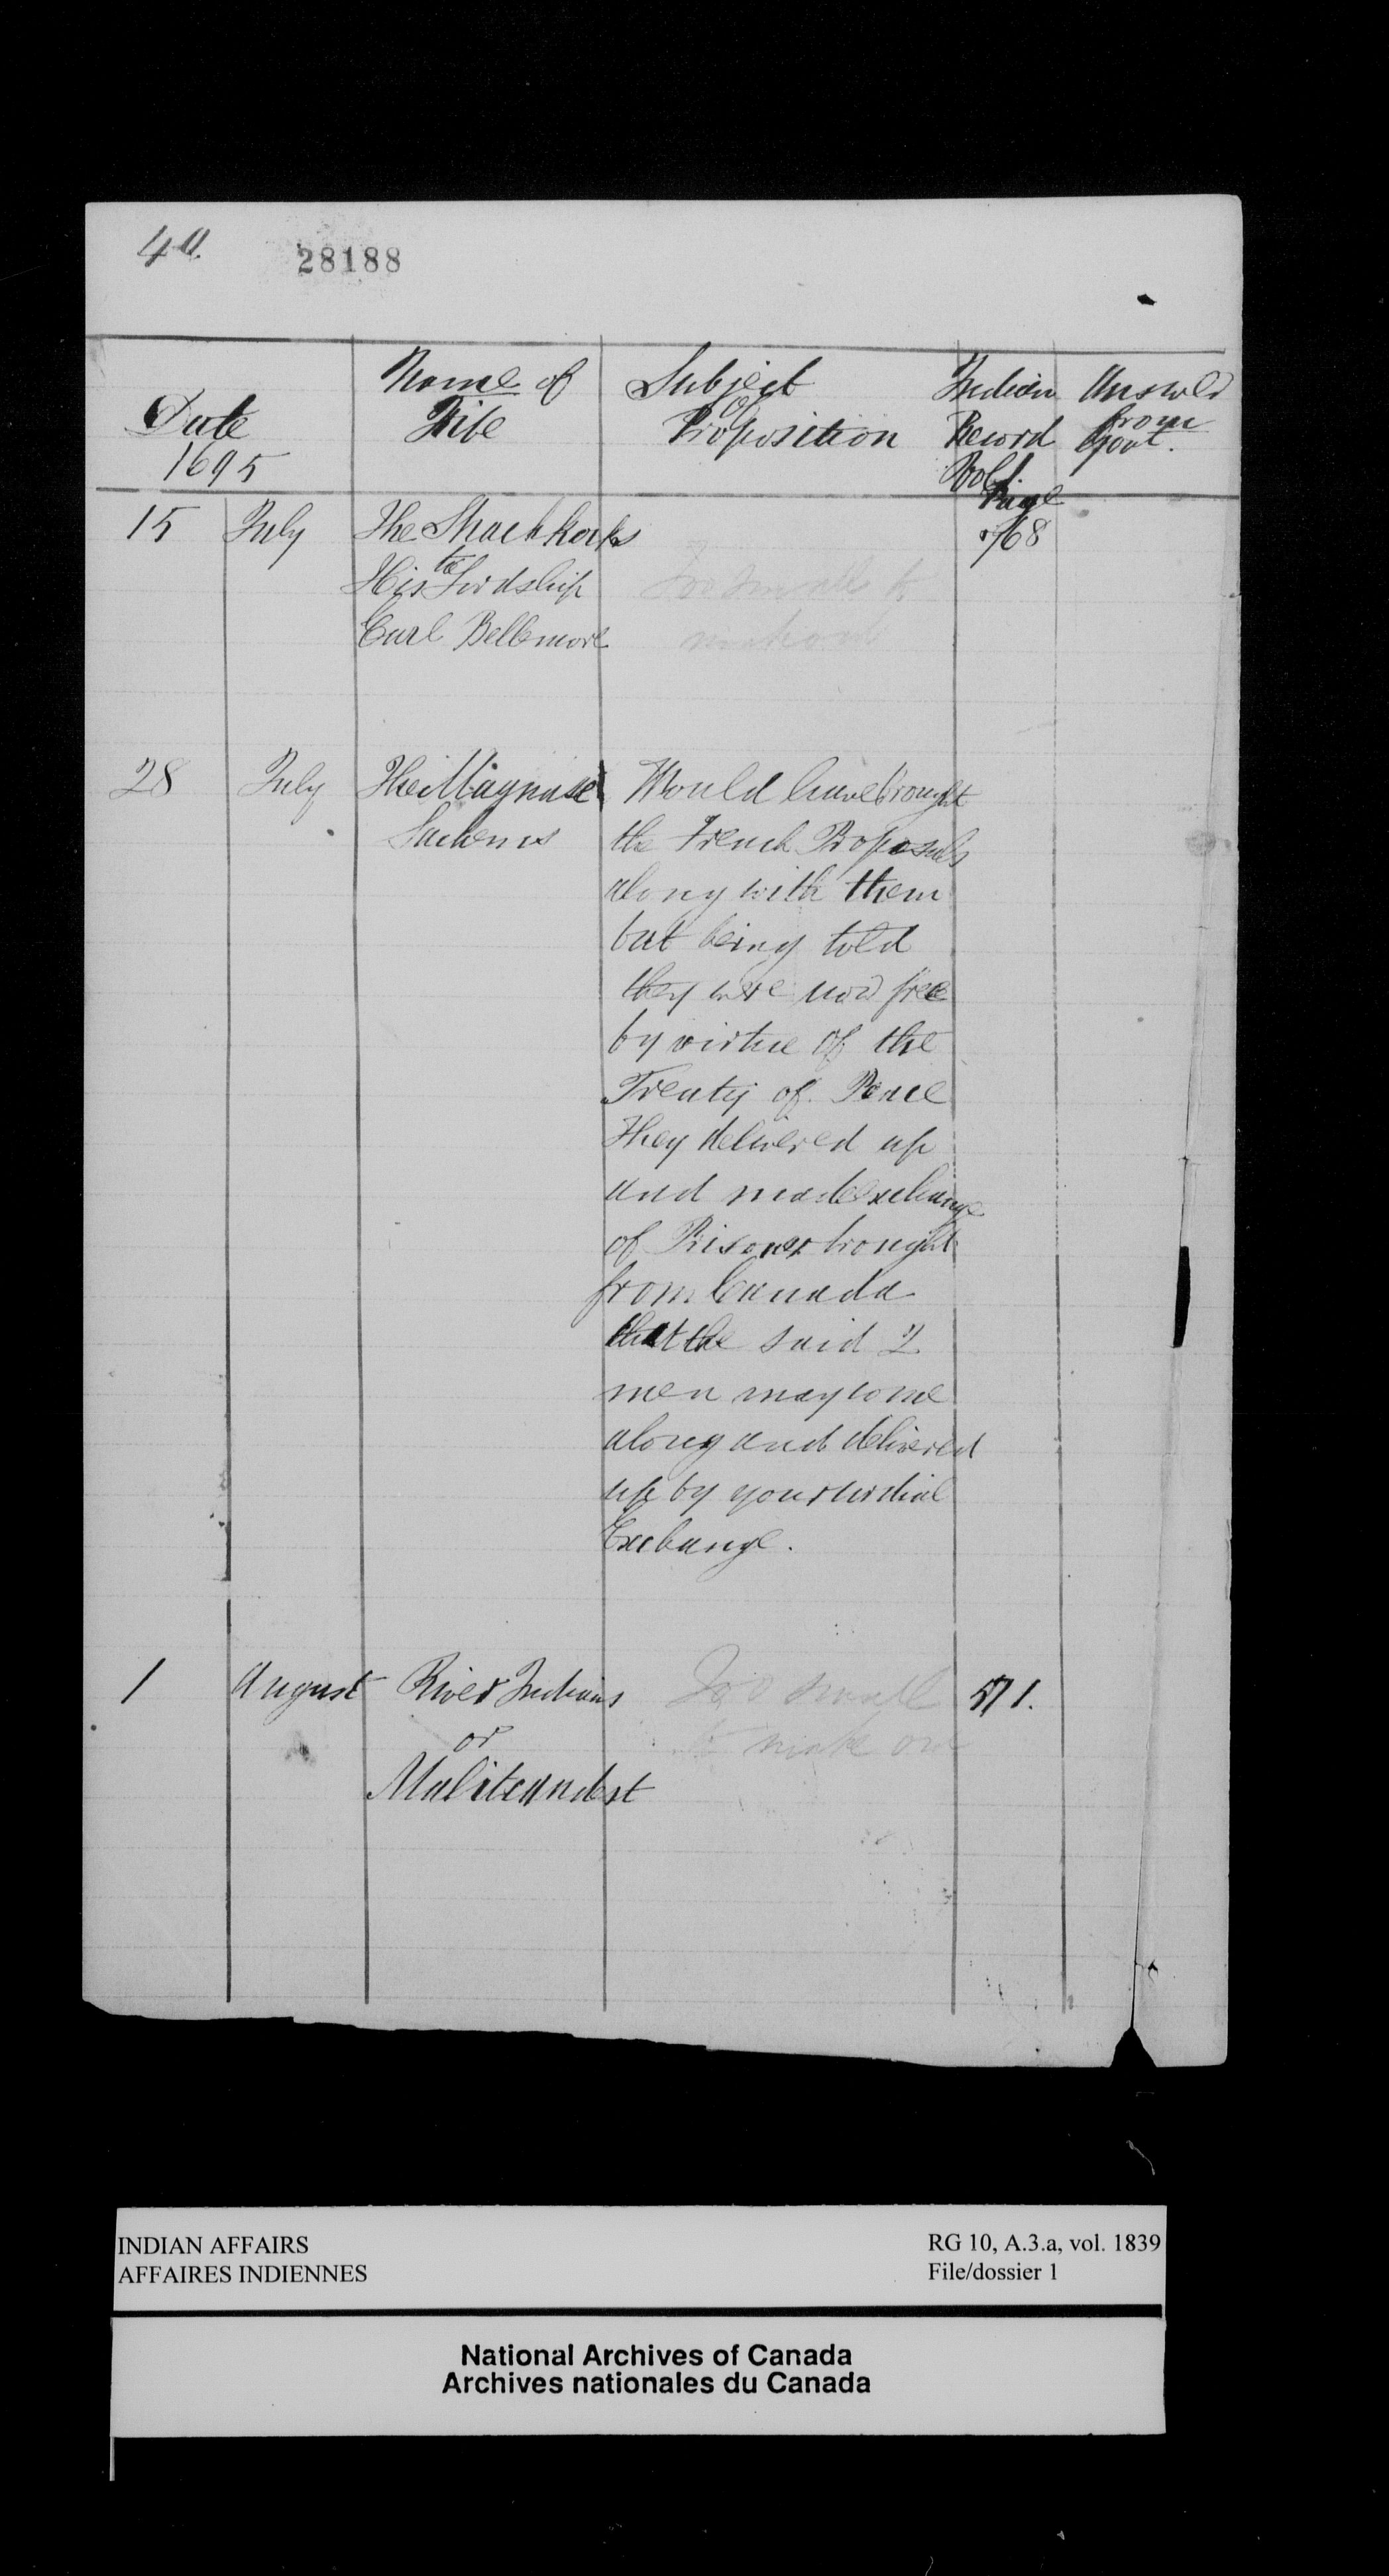 4a. 28188
Date
1695
Name of
Tribe
Subject
of
Proposition
Indian
Record
Vol 1
Page
Answer
from
Govt.
15 July The Shackkooks
to
His Lordship
Earl Bellemore
Too small to
768
28 July The Maquase
Sachems
Would have brought
the French Proposals
along with them
but being told
they were now free
by virtue of the
Treaty of Peace
They delivered up
and made exchange
of Prisoner brought
from Canada
that the said 2
men may come
along and delivered
up by your
Exchange.
1 August River Indians
or
Too small
to make out
571.
INDIAN AFFAIRS
AFFAIRES INDIENNES
RG 10, A.3.a, vol. 1839
File/dossier 1
National Archives of Canada
Archives nationales du Canada